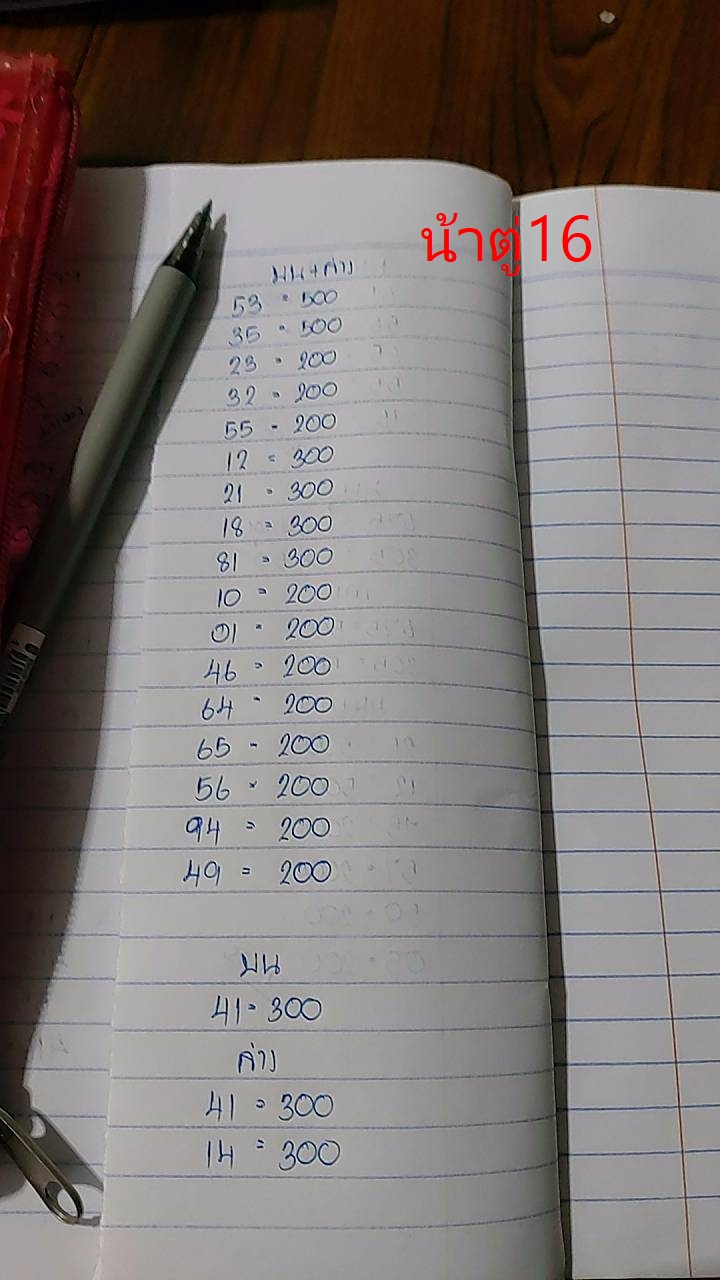 น้าตู่16
บน+ล่าง
53 = 500
35 = 500
23 = 200
32 = 200
55 = 200
12 = 300
21 = 300
18 = 300
81 = 300
10 = 200
01 = 200
46 = 200
64 = 200
65 = 200
56 = 200
94 = 200
49 = 200
บน
41 = 300
ล่าง
41 = 300
14 = 300